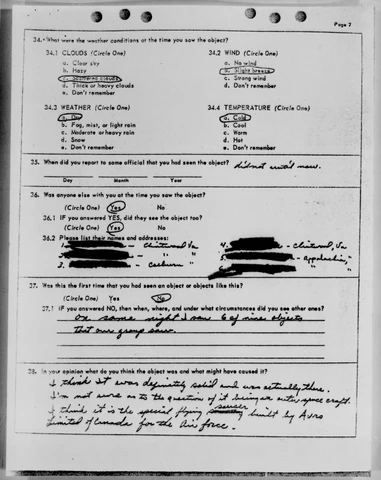 Page 7
34. What were the weather conditions at the time you saw the object?
34.1 CLOUDS (Circle One)
a. Clear sky
b. Hazy
c. Scattered clouds
d. Thick or heavy clouds
e. Don't remember
34.2 WIND (Circle One)
a. No wind
b. Slight breeze
c. Strong wind
d. Don't remember
34.3 WEATHER (Circle One)
a. Dry
b. Fog, mist, or light rain
c. Moderate or heavy rain
d. Snow
e. Don't remember
34.4 TEMPERATURE (Circle One)
a. Cold
b. Cool
c. Warm
d. Hot
e. Don't remember
35. When did you report to some official that you had seen the object? did not until now.
Day Month Year
36. Was anyone else with you at the time you saw the object?
(Circle One) Yes No
36.1 IF you answered YES, did they see the object too?
(Circle One) Yes No
36.2 Please list their names and addresses:
1. - Clintwood, Va 4. - Clintwood, Va
" " 5. - Appalachia, "
3. - Coeburn " 6. - " "
37. Was this the first time that you had seen an object or objects like this?
(Circle One) Yes No
37.1 IF you answered NO, then when, where, and under what circumstances did you see other ones?
On same night I saw 6 of nine objects
that our group saw.
38. In your opinion what do you think the object was and what might have caused it?
I think it was definitely solid and was actually there.
I'm not sure as to the question of it being an outer space craft.
I think it is the special flying saucer built by Avro
Limited of Canada for the Air force.